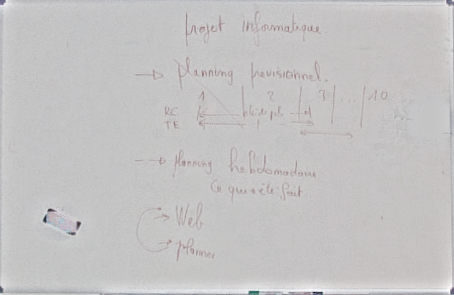 projet informatique
→ planning previsionnel.
1 2 3 ... 10
RC
TE
→ planning hebdomadaire
ce qui a été fait
→ Web
→ planner